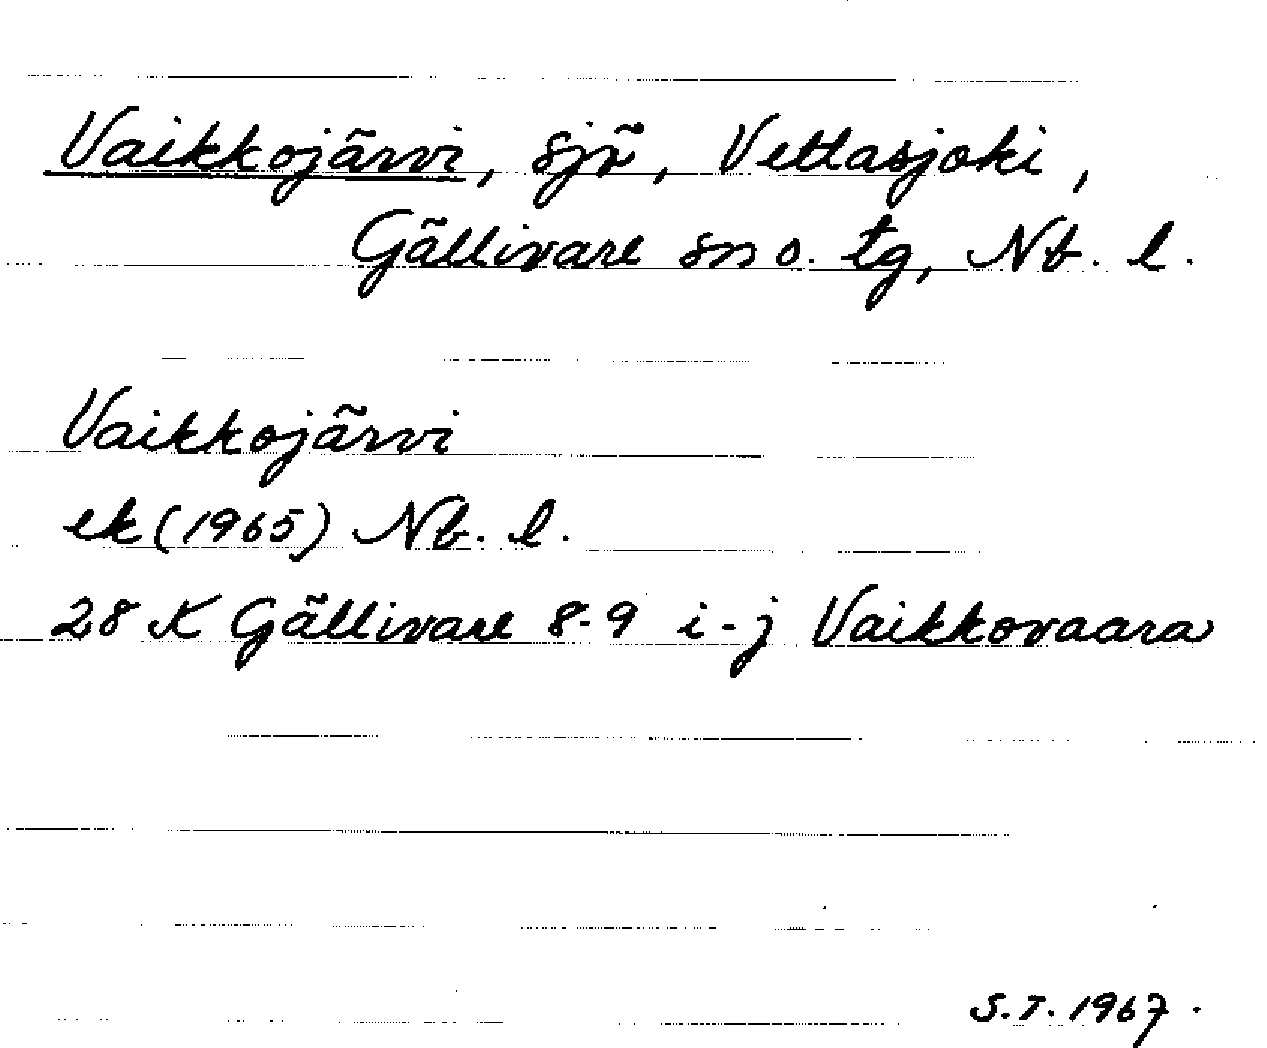 Vaikkojärvi, sjö, Vettasjoki,
Gällivare sn o. tg, Nb. l.
Vaikkojärvi
ek (1965) Nb. l.
28 K Gällivare 8-9 i-j Vaikkovaara
S.T. 1967.